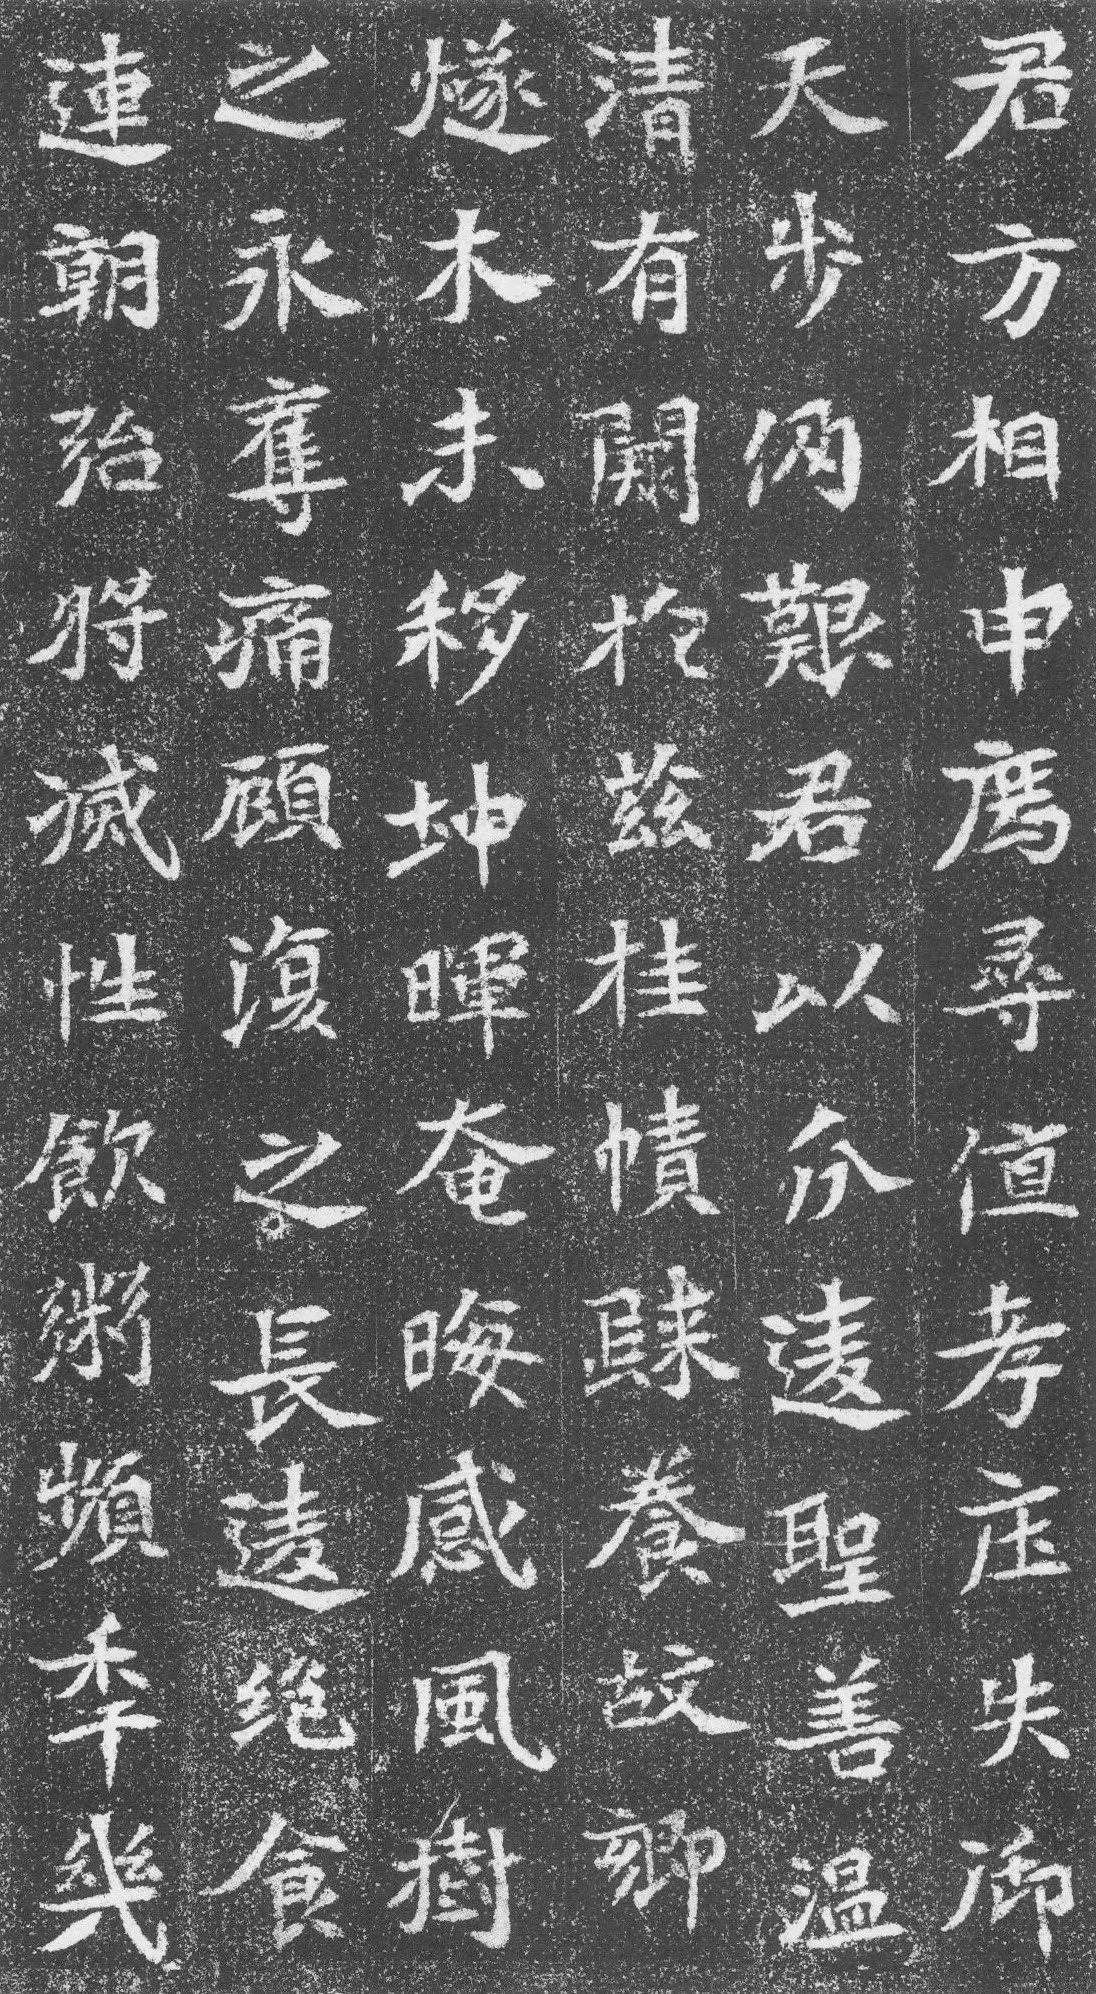 君方相申厲尋值孝庄失御
天步艱君以介逺聖善溫
清有闕於茲桂幘歸養故鄉
燧木未移坤暉奄晦感風樹
之永奪痛顧復之長逺絕食
連朝殆將滅性飲粥頻季幾